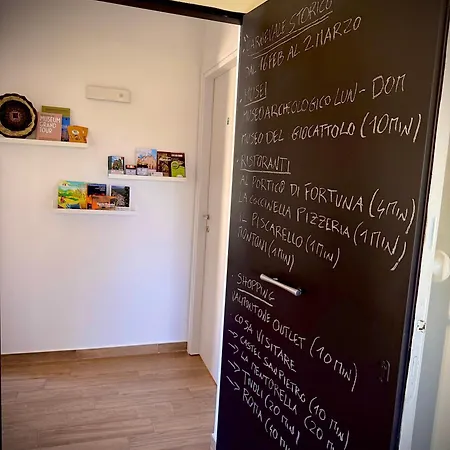 MUSEUM
GRAND
TOUR
• CARNEVALE STORICO
DAL 16 FEB AL 2 MARZO
• MUSEI
MUSEO ARCHEOLOGICO LUN - DOM
MUSEO DEL GIOCATTOLO (10 MIN)
• RISTORANTI
AL PORTICO DI FORTUNA (4 MIN)
LA COCCINELLA PIZZERIA (1 MIN)
IL PISCARELLO (1 MIN)
TONTONI (1 MIN)
• SHOPPING
VALMONTONE OUTLET (10 MIN)
COSA VISITARE
→ CASTEL SAN PIETRO (10 MIN)
→ LA MENTORELLA (20 MIN)
→ TIVOLI (20 MIN)
→ ROMA (40 MIN)